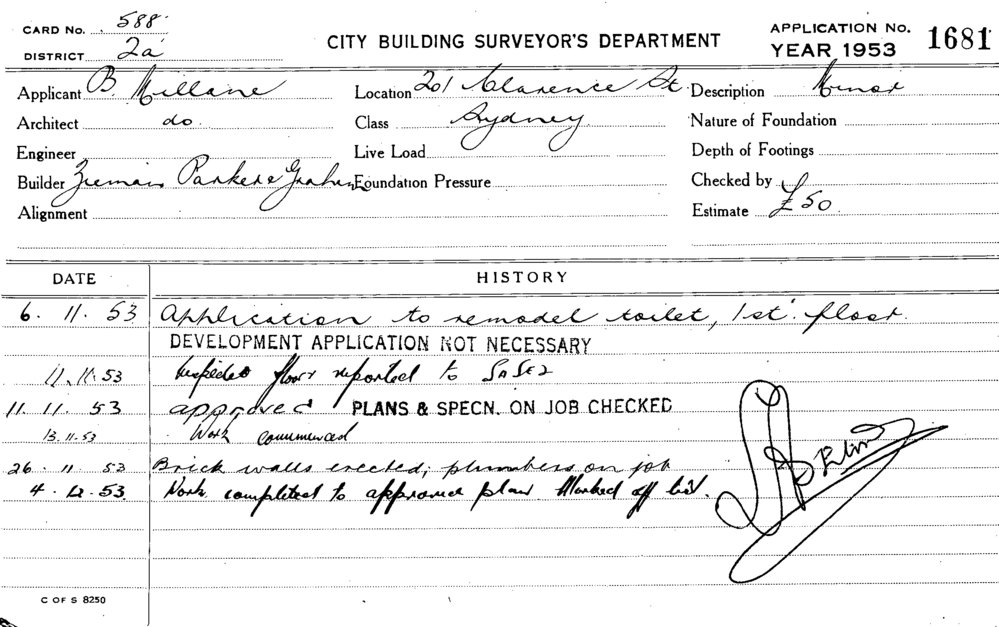 CARD No. 588
DISTRICT 2a
CITY BUILDING SURVEYOR'S DEPARTMENT
APPLICATION No. 1681
YEAR 1953
Applicant B. Millane
Location 201 Clarence St.
Description Minor
Architect do.
Class Sydney
Nature of Foundation
Engineer
Live Load
Depth of Footings
Builder Parker & Graham
Foundation Pressure
Checked by
Alignment
Estimate £50
DATE HISTORY
6. 11. 53 Application to remodel toilet, 1st. floor.
DEVELOPMENT APPLICATION NOT NECESSARY
11.53 floor reported to
11. 11. 53 approved PLANS & SPECN. ON JOB CHECKED
13.11.53 Work commenced
26. 11. 53 Brick walls erected, plumbers on job
4. 12. 53 Work completed to approved plan Marked off
C OF S 8250